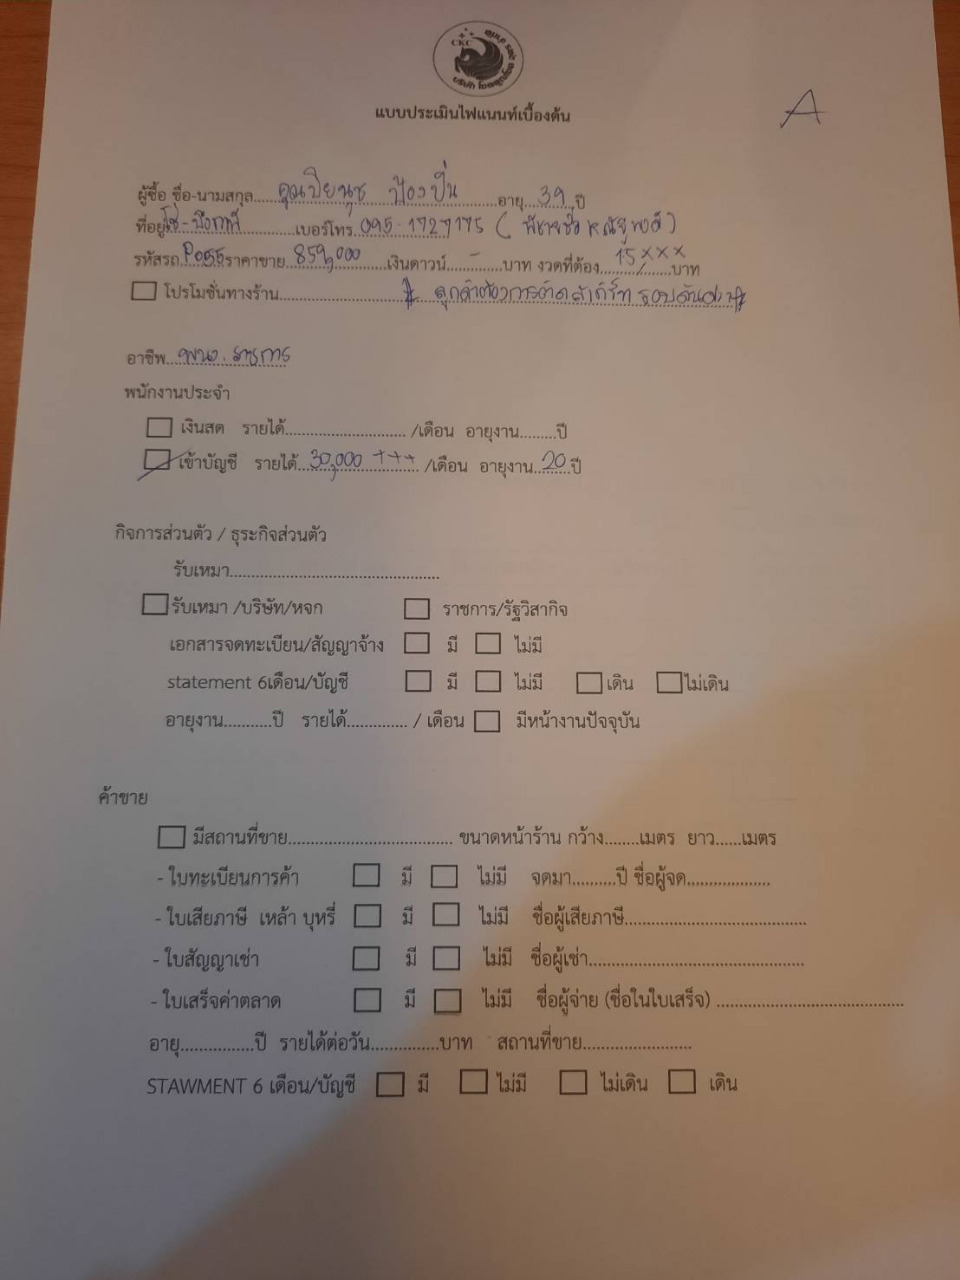 CKC
แบบประเมินไฟแนนท์เบื้องต้น
A
ผู้ซื้อ ชื่อ-นามสกุล.....คุณปิยนุช ป้องปิ่น.....อายุ..39..ปี
ที่อยู่.....เบอร์โทร.095-1727175 (
รหัสรถ.P055.ราคาขาย..859,000....เงินดาวน์....-....บาท งวดที่ต้อง..15,xxx..บาท
โปรโมชั่นทางร้าน.....ลูกค้าต้องการ
อาชีพ..พนง.ราชการ
พนักงานประจำ
เงินสด รายได้............................ /เดือน อายุงาน.........ปี
เข้าบัญชี รายได้..30,000 +++.. /เดือน อายุงาน..20..ปี
กิจการส่วนตัว / ธุระกิจส่วนตัว
รับเหมา................................................
รับเหมา /บริษัท/หจก ราชการ/รัฐวิสากิจ
เอกสารจดทะเบียน/สัญญาจ้าง มี ไม่มี
statement 6เดือน/บัญชี มี ไม่มี เดิน ไม่เดิน
อายุงาน...........ปี รายได้.............. / เดือน มีหน้างานปัจจุบัน
ค้าขาย
มีสถานที่ขาย...................................... ขนาดหน้าร้าน กว้าง........เมตร ยาว......เมตร
- ใบทะเบียนการค้า มี ไม่มี จดมา..........ปี ชื่อผู้จด...................
- ใบเสียภาษี เหล้า บุหรี่ มี ไม่มี ชื่อผู้เสียภาษี..........................................
- ใบสัญญาเช่า มี ไม่มี ชื่อผู้เช่า..................................................
- ใบเสร็จค่าตลาด มี ไม่มี ชื่อผู้จ่าย (ชื่อในใบเสร็จ) ...........................................
อายุ.................ปี รายได้ต่อวัน................บาท สถานที่ขาย.........................
STAWMENT 6 เดือน/บัญชี มี ไม่มี ไม่เดิน เดิน